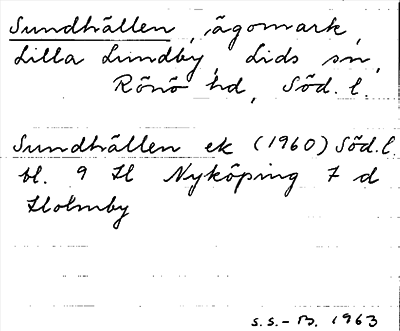 Sundhällen, ägomark,
Lilla Lundby, Lids sn,
Rönö hd, Söd. l.
Sundhällen ek (1960) Söd. l.
bl. 9 H Nyköping 7 d
Holmby
S.S.-B. 1963